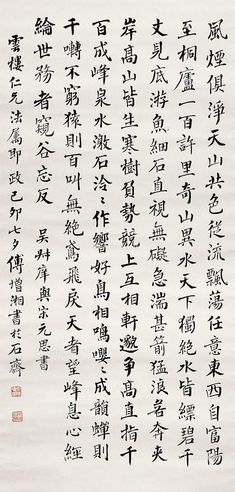 風煙俱淨天山共色從流飄蕩任意東西自富陽
至桐廬一百許里奇山異水天下獨絕水皆縹碧千
丈見底游魚細石直視無礙急湍甚箭猛浪若奔夾
岸高山皆生寒樹負勢競上互相軒邈爭高直指千
百成峰泉水激石泠々作響好鳥相鳴嚶々成韻蟬則
千囀不窮猿則百叫無絕鳶飛戾天者望峰息心經
綸世務者窺谷忘反 吳叔庠與宋元思書
雲樓仁兄法屬即政己卯七夕傅增湘書於石齋